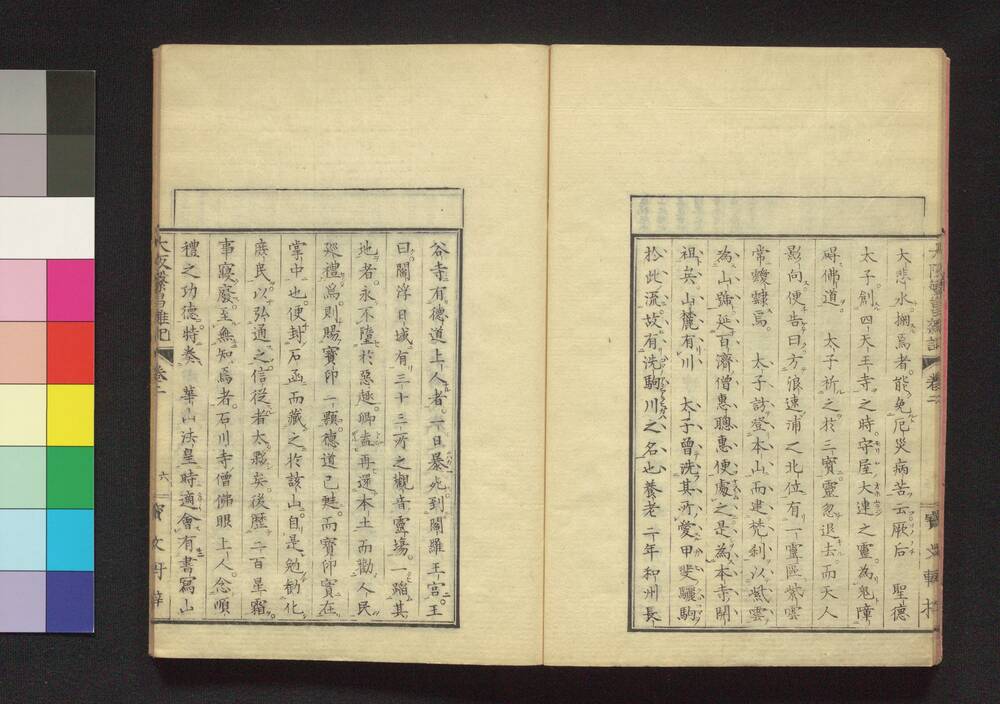 大悲水掬焉者能免厄災病苦云厥后 聖德
太子創四天王寺之時守屋大連之靈為鬼障
碍佛道 太子祈之於三寶靈忽退去而天人
影向便告曰方浪速浦之北位有一靈區紫雲
常靉靆焉 太子訪登本山而建梵刹以紫雲
為山號延百濟僧惠聰惠便處之是為本寺開
祖矣山麓有川 太子曾洗其所愛甲斐驪駒
於此流故有洗駒川之名也養老二年和州長
大阪繁昌雜記 卷二 寶文軒梓
谷寺有德道上人者一日暴死到閻羅王宮王
曰閻浮日域有三十三所之觀音靈場一蹈其
地者永不墮於惡趣卿盍再還本土而勸人民
巡禮焉則賜寶印一顆德道已甦而寶印實在
掌中也便封石函而藏之於該山自是勉勸化
庶民以弘通之信從者太夥矣後歷二百星霜
事寢廢至無知焉者石川寺僧佛眼上人念順
禮之功德特奏 華山法皇時適會有書寫山
大阪繁昌雜記 卷二 六 寶文軒梓